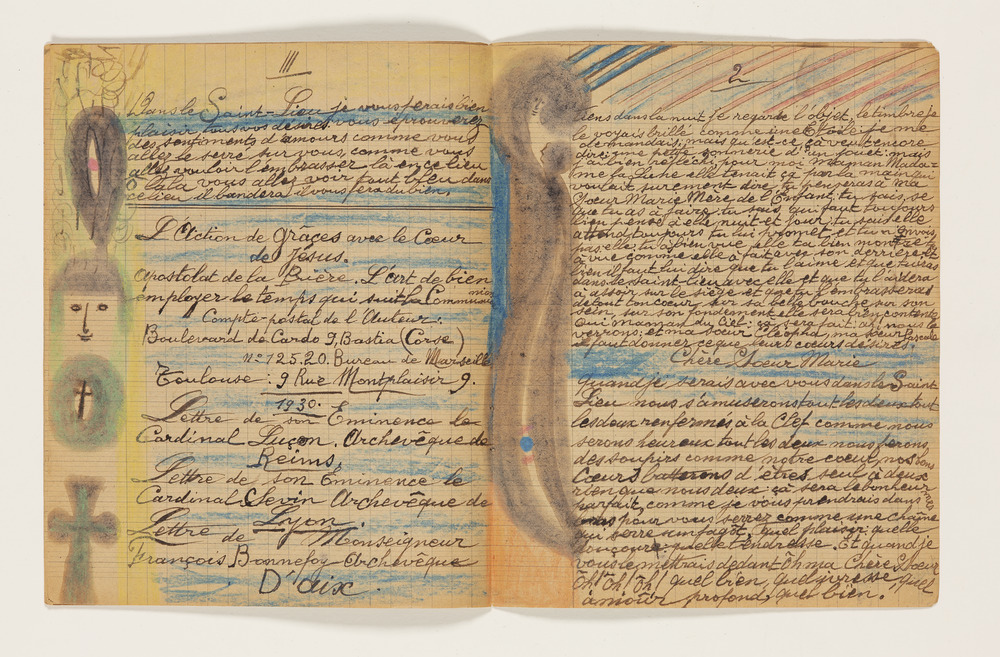 III
Dans le Saint-Lieu je vous ferais bien
plaisir, tous vos désirs. vous éprouverez
des sentiments d'amours comme vous
allez le serre sur vous comme vous
allez vouloir l'embrasser là en ce lieu
là là vous allez voir tout
ce lieu il bandera il vous fera du bien,
L'Action de Grâces avec le Cœur
de Jésus.
Apostolat de la Prière. L'art de bien
employer le temps qui suit la Communion
Compte-postal de l'Auteur:
Boulevard de Cardo 9, Bastia (Corse)
n° 125.20. Bureau de Marseille
Toulouse: 9 Rue Montplaisir 9.
1930.
Lettre de son Eminence le
Cardinal Luçon. Archevêque de
Reims,
Lettre de son Eminence le
Cardinal Sevin Archevêque de
Lyon.
Lettre de Monseigneur
François Bonnefoy Archevêque
D'aix.
2
tiens dans la nuit je regarde l'objet, le timbre je
le voyais brillé comme une Etoile je me
demandais, mais qu'est-ce ça veut encore
dire une petite sonnerie d'un jouet; mais
bien réfléchi, pour moi Maman Mada-
me la Lune elle tenait ça par la main qui
voulait surement dire, tu penseras à Ma
Sœur Marie Mère de l'Enfant, tu sais,
que tu as à faire, tu sais, qui faut toujours
bien pensé à elle nuit et jour, tu sais elle
attend toujours tu lui promet, et tu n'envois
pas, elle tu a bien vue, elle ta bien montrée
à vue comme elle à fait avec son derrière, et
bien il faut lui dire que tu l'aime et que tu
dans le Saint-Lieu avec elle et que tu l'aidera
à s'assoir sur le siège et que tu l'embrasseras
de tout ton cœur, sur sa belle bouche, sur son
sein, sur son fondement elle sera bien contente
Oui Manzan du Ciel: ça sera fait, ah nous le
verrons; et ma sœur Léonia, ma sœur Pascale
il faut donner ce que leurs cœurs désires.
Chère Sœur Marie
Quand je serais avec vous dans le Saint-
Lieu nous s'amuserons tout les deux tout
les deux renfermés à la Clef comme nous
serons heureux tout les deux nous ferons
des soupirs comme notre cœur, nos bons
Cœurs batterons d'êtres seul à deux
rien que nous deux ça sera le bonheur
parfait, comme je vous prendrais dans mes
bras pour vous serrez comme une chaîne
qui serre un fagot, quel plaisir, quelle
douçoure quelle tendresse. Et quand je
vous le mettrais dedant-Ôh ma Chère Sœur
Ôh! Ôh! Ôh! quel bien, quel ivresse, quel
amour profond, quel bien.